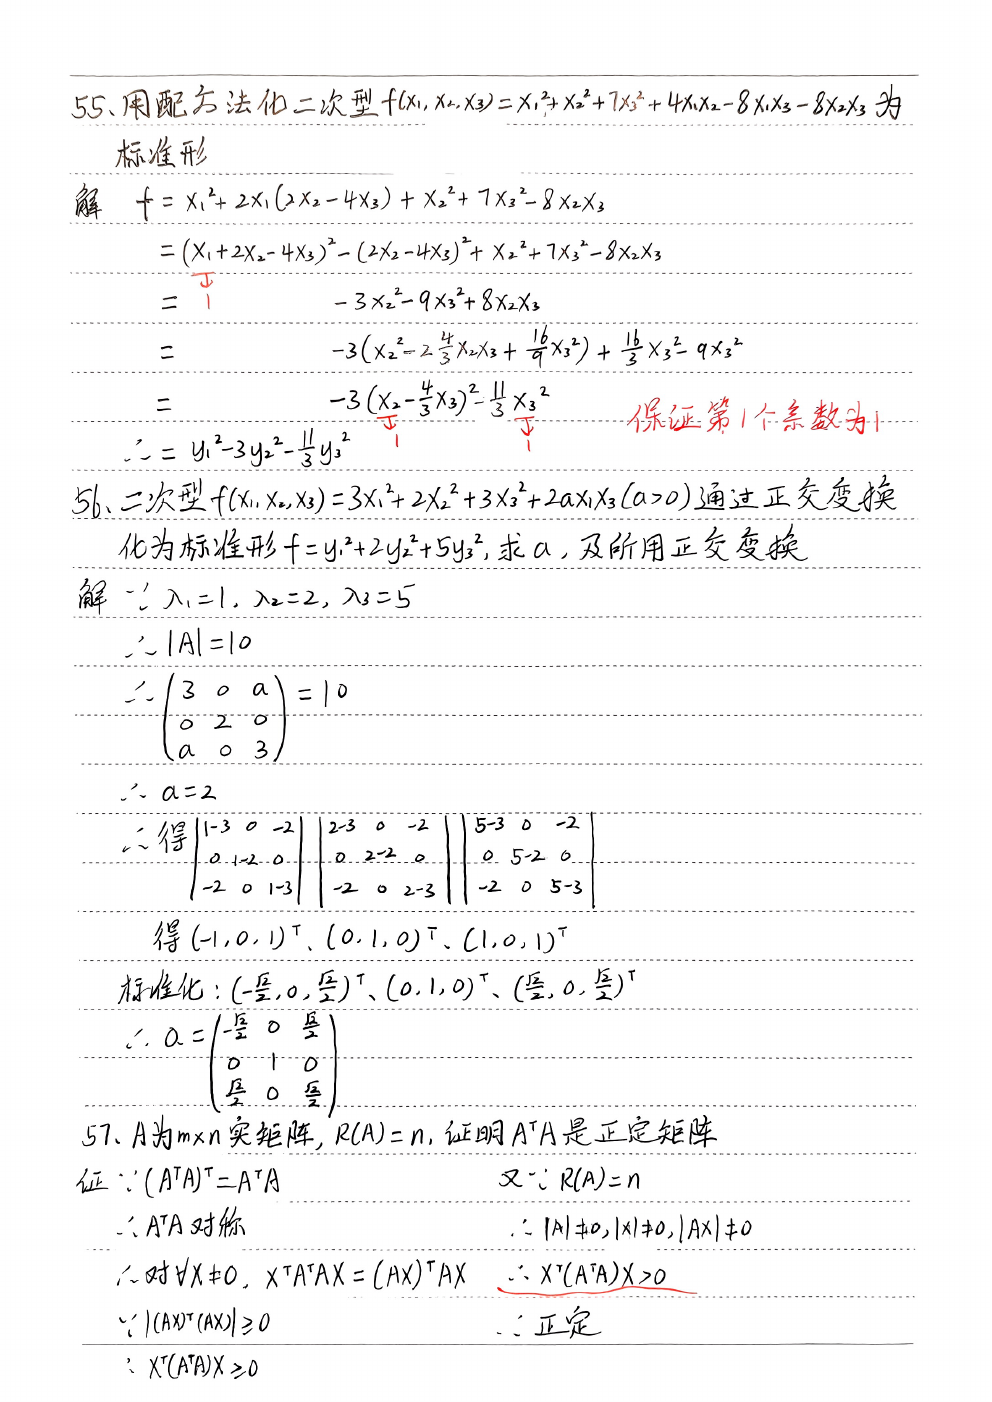 55、用配方法化二次型f(x₁, x₂, x₃)=x₁²+x₂²+7x₃²+4x₁x₂-8x₁x₃-8x₂x₃为
标准形
解 f=x₁²+2x₁(2x₂-4x₃)+x₂²+7x₃²-8x₂x₃
=(x₁+2x₂-4x₃)²-(2x₂-4x₃)²+x₂²+7x₃²-8x₂x₃
= 1 -3x₂²-9x₃²+8x₂x₃
= -3(x₂²-2 4/3 x₂x₃+16/9 x₃²)+16/3 x₃²-9x₃²
= -3(x₂-4/3 x₃)²-11/3 x₃²
1 1 保证第1个系数为1
∴=y₁²-3y₂²-11/3 y₃²
56、二次型f(x₁, x₂, x₃)=3x₁²+2x₂²+3x₃²+2ax₁x₃(a>0)通过正交变换
化为标准形f=y₁²+2y₂²+5y₃², 求a, 及所用正交变换
解 ∵ λ₁=1, λ₂=2, λ₃=5
∴|A|=10
∴(3 0 a
0 2 0
a 0 3)=10
∴ a=2
∴得|1-3 0 -2| |2-3 0 -2| |5-3 0 -2|
|0 1-2 0| |0 2-2 0| |0 5-2 0|
|-2 0 1-3| |-2 0 2-3| |-2 0 5-3|
得(-1, 0, 1)ᵀ、(0, 1, 0)ᵀ、(1, 0, 1)ᵀ
标准化:(-√2/2, 0, √2/2)ᵀ、(0, 1, 0)ᵀ、(√2/2, 0, √2/2)ᵀ
∴ Q=(-√2/2 0 √2/2
0 1 0
√2/2 0 √2/2)
57、A为m×n实矩阵, R(A)=n, 证明AᵀA是正定矩阵
证 ∵(AᵀA)ᵀ=AᵀA
∴AᵀA对称
∴对∀X≠0, XᵀAᵀAX=(AX)ᵀAX
∵|(AX)ᵀ(AX)|≥0
∴ Xᵀ(AᵀA)X≥0
又∵R(A)=n
∴|A|≠0,|x|≠0,|AX|≠0
∴ Xᵀ(AᵀA)X>0
∴正定